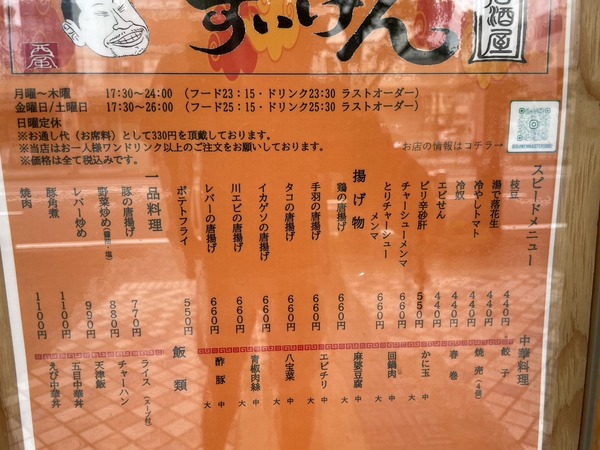 すいげん
居酒屋
月曜～木曜 17:30～24:00 (フード23:15・ドリンク23:30 ラストオーダー)
金曜日/土曜日 17:30～26:00 (フード25:15・ドリンク25:30 ラストオーダー)
日曜定休
※お通し代(お席料)として330円を頂戴しております。
※当店はお一人様ワンドリンク以上のご注文をお願いしております。
※価格は全て税込みです。
お店の情報はコチラ→
スピードメニュー
枝豆 440円
茹で落花生 440円
冷やしトマト 440円
冷奴 440円
エビせん 440円
ピリ辛砂肝 550円
チャーシューメンマ 660円
とりチャーシューメンマ 660円
揚げ物
鶏の唐揚げ 660円
手羽の唐揚げ 660円
タコの唐揚げ 660円
イカゲソの唐揚げ 660円
川エビの唐揚げ 660円
レバーの唐揚げ 660円
ポテトフライ 550円
一品料理
豚の唐揚げ 770円
野菜炒め 880円
レバー炒め 990円
豚角煮 1100円
焼肉 1100円
中華料理
餃子
焼売(4個)
春巻
かに玉 中 大
回鍋肉 中 大
麻婆豆腐 中 大
エビチリ 中 大
八宝菜 中 大
青椒肉絲 中 大
酢豚 中 大
飯類
ライス(スープ付)
チャーハン
天津飯
五目中華丼
えび中華丼